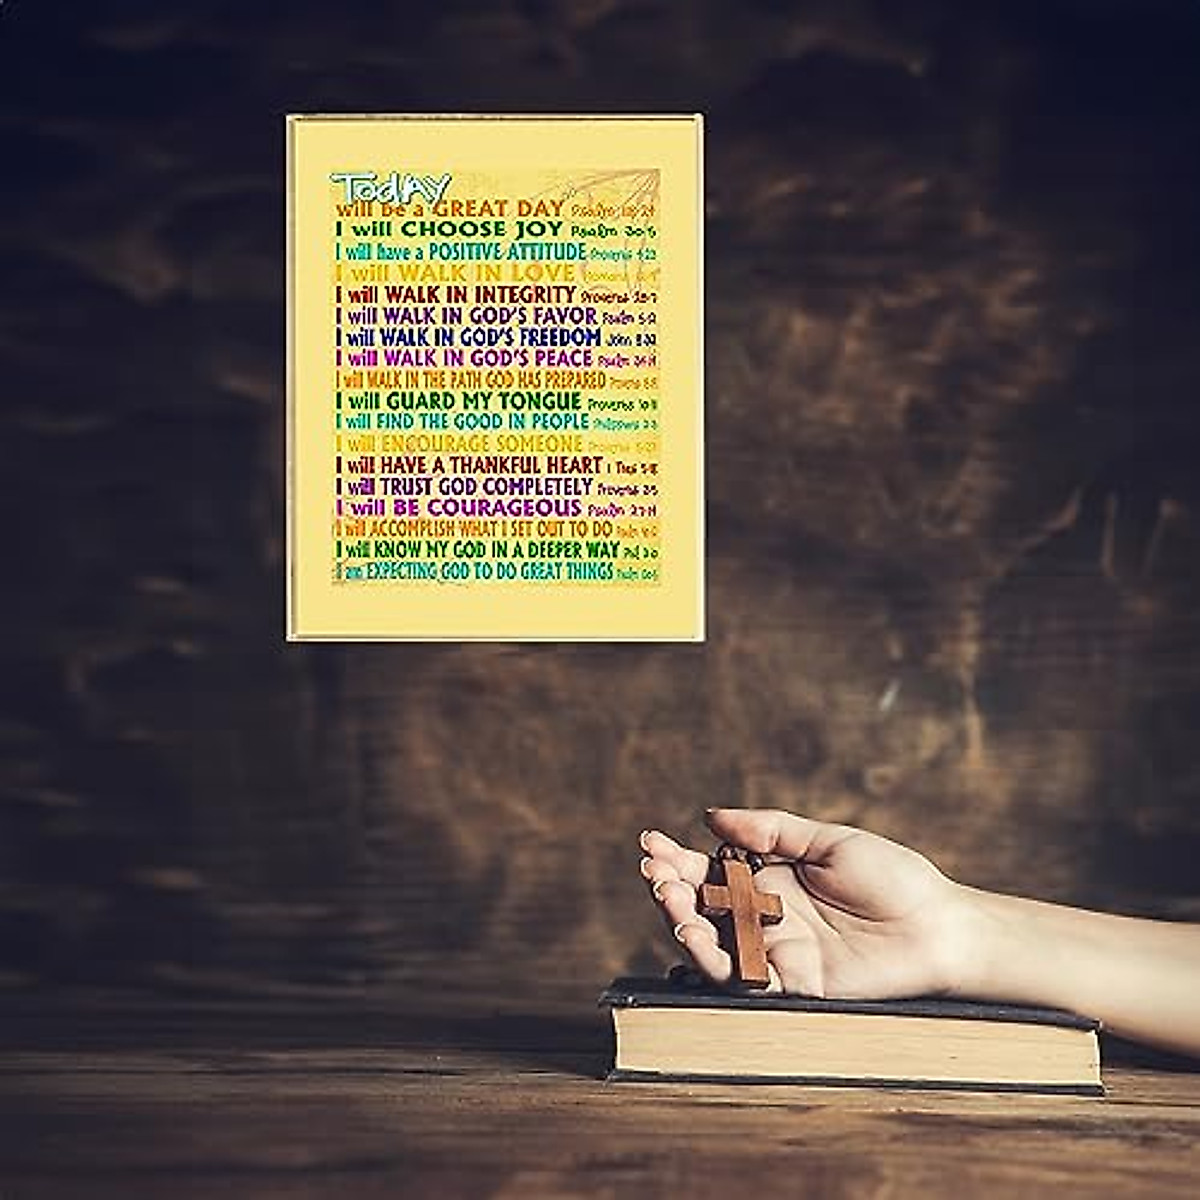 Today
will be a GREAT DAY Psalm 118:24
I will CHOOSE JOY Psalm 30:5
I will have a POSITIVE ATTITUDE Proverbs 4:23
I will WALK IN LOVE
I will WALK IN INTEGRITY Proverbs
I will WALK IN GOD'S FAVOR Psalm 5:12
I will WALK IN GOD'S FREEDOM John
I will WALK IN GOD'S PEACE Psalm
I will WALK IN THE PATH GOD HAS PREPARED
I will GUARD MY TONGUE Proverbs
I will FIND THE GOOD IN PEOPLE Philippians
I will ENCOURAGE SOMEONE Proverbs
I will HAVE A THANKFUL HEART 1 Thes 5:18
I will TRUST GOD COMPLETELY Proverbs 3:5
I will BE COURAGEOUS Psalm 27:14
I will ACCOMPLISH WHAT I SET OUT TO DO Psalm
I will KNOW MY GOD IN A DEEPER WAY
I am EXPECTING GOD TO DO GREAT THINGS Psalm